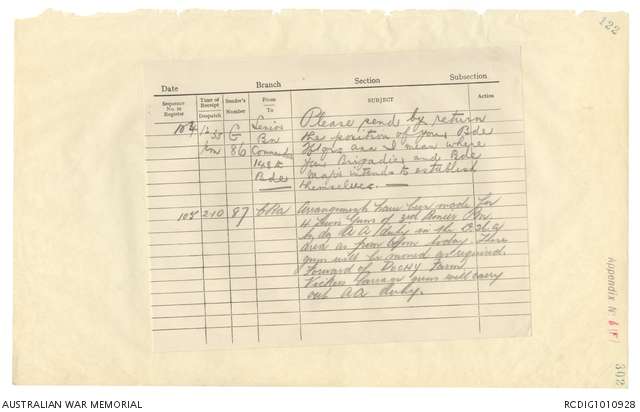 122
Date Branch Section Subsection
Sequence No. in Register
Time of Receipt
Despatch
Sender's Number
From
To
SUBJECT
Action
10 G 86 Senior Bn Commander Bde
Please send by return
the position of your Bde
Hqrs as I mean where
your Brigadier and Bde
Major intends to establish
themselves.
2.10 87
Arrangements have been made for
4 Guns of Bn
to do A A duty in the
area as from 6pm today. These
guns will be moved as required.
Forward of DUCHY Farm
Vickers barrage guns will carry
out A A duty.
Appendix
302
AUSTRALIAN WAR MEMORIAL
RCDIG1010928